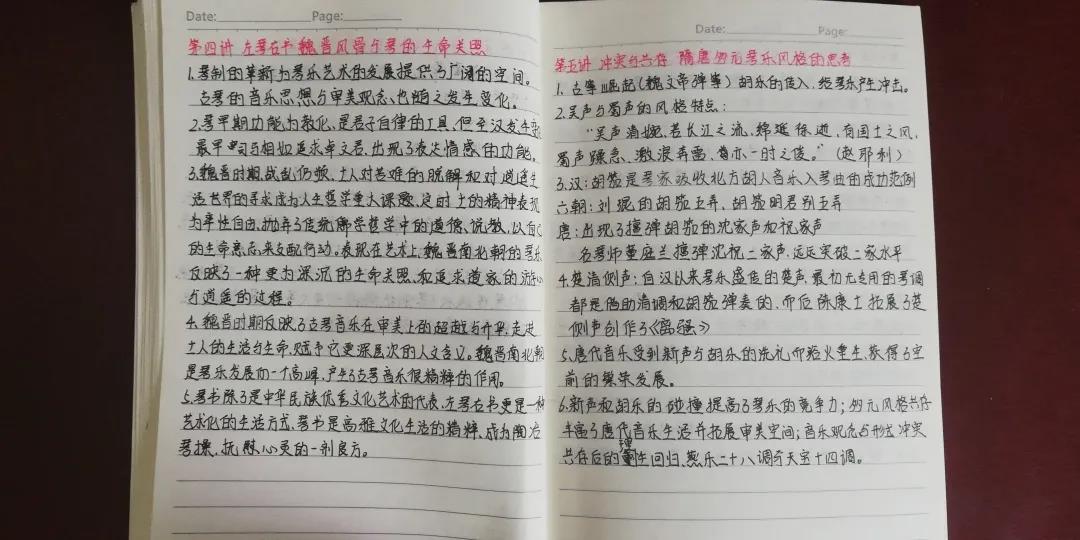 Date: Page:
第四讲 左琴右书 魏晋风骨与琴的生命关照
1.琴制的革新为琴乐艺术的发展提供了广阔的空间。
古琴的音乐思想与审美观念、也随之发生变化。
2.琴早期功能为教化、是君子自律的工具,但至汉发生变
最早 司马相如追求卓文君,出现了表达情感的功能。
3.魏晋时期,战乱仍频,士人对苦难的脱解和对逍遥生
活世界的寻求成为人生哲学重大课题,这时士的精神表现
为率性自由,抛弃了传统儒学哲学中的道德、说教,以自己
的生命意志来支配行动。表现在艺术上,魏晋南北朝的琴乐
反映了一种更为深沉的生命关照、和追求道家的游心
于逍遥的过程。
4.魏晋时期反映了古琴音乐在审美上的超越与升华,走进
士人的生活与生命,赋予它更深层次的人文含义。魏晋南北朝
是琴乐发展的一个高峰,产生了古琴音乐很精粹的作用。
5.琴书除了是中华民族优秀文化艺术的代表,左琴右书更是一种
艺术化的生活方式,琴书是高雅文化生活的精粹,成为陶冶
琴操,抚慰心灵的一剂良方。
Date: Page:
第五讲 冲突与共存 隋唐多元琴乐风格的思考
1. 古筝崛起(魏文帝弹筝)胡乐的传入,给琴乐产生冲击。
2.吴声与蜀声的风格特点:
“吴声清婉,若长江之流,绵延徐逝,有国士之风,
蜀声躁急,激浪奔雷,亦一时之俊。”(赵耶利)
3.汉:胡笳是琴家吸收北方胡人音乐入琴曲的成功范例
六朝:刘琨的胡笳五弄、胡笳明君别五弄
唐:出现了擅弹胡笳的沈家声和祝家声
名琴师董庭兰擅弹沈祝二家声,远远突破二家水平
4.楚清侧声:自汉以来琴乐盛传的楚声,最初无专用的琴调
都是借助清调和胡笳弹奏的,而后陈康士拓展了楚
侧声创作了《离骚》
5.唐代音乐受到新声与胡乐的洗礼而浴火重生,获得了空
前的繁荣发展。
6.新声和胡乐的碰撞提高了琴乐的竞争力;多元风格共存
丰富了唐代音乐生活并拓展审美空间;音乐观念与形式冲突
共存后的理性回归,燕乐二十八调与天宝十四调。